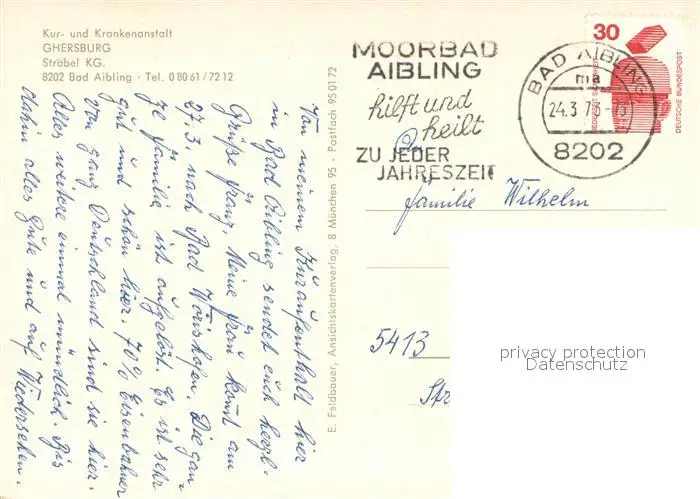 Kur- und Krankenanstalt
GHERSBURG
Ströbel KG.
8202 Bad Aibling · Tel. 0 80 61 / 72 12
Von meinem Kuraufenthalt hier
in Bad Aibling sendet euch herzl.
Grüße Franz. Meine Frau kommt am
27.3. nach Bad Wörishofen. Die gan-
ze Familie ist aufgelöst. Es ist sehr
gut und schön hier. 70% Eisenbahner
von ganz Deutschland sind sie hier.
Alles weitere einmal mündlich. Bis
dahin alles Gute und auf Wiedersehen.
E. Feldbauer, Ansichtskartenverlag, 8 München 95 - Postfach 95 01 72
MOORBAD
AIBLING
hilft und
heilt
ZU JEDER
JAHRESZEIT
BAD AIBLING
ma
24.3.75-15
8202
30
DEUTSCHE BUNDESPOST
Familie Wilhelm
5413
privacy protection
Datenschutz